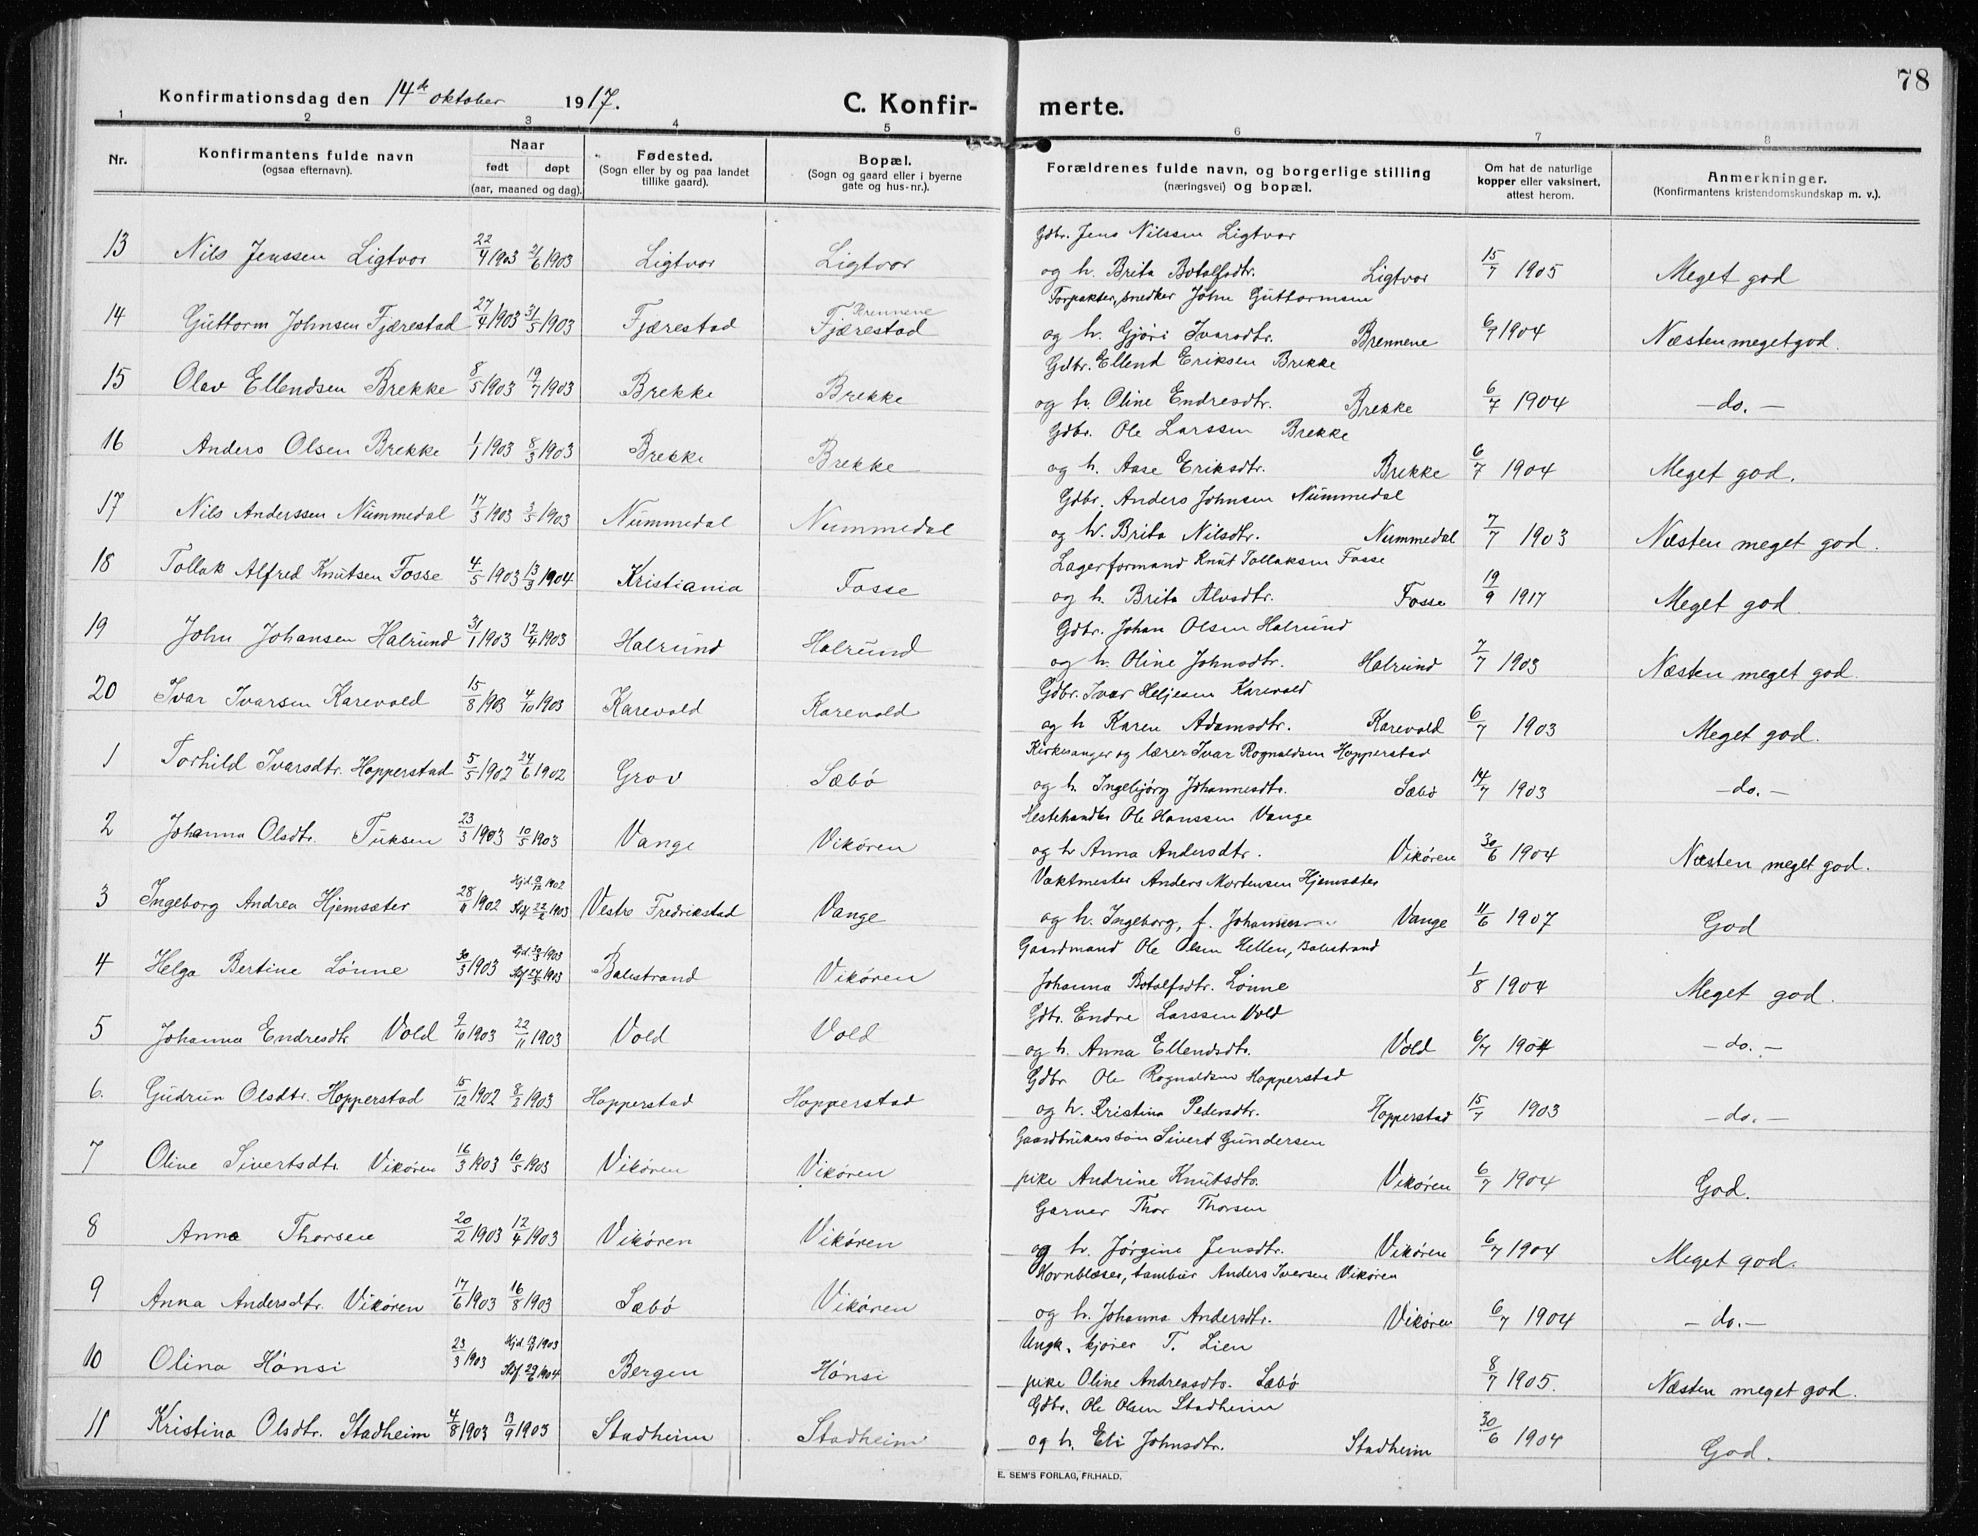 78
Konfirmationsdag den 14de oktober 1917. C. Konfirmerte.
1 2 3 4 5 6 7 8
Nr. Konfirmantens fulde navn (ogsaa efternavn). Naar født døpt (aar, maaned og dag). Fødested. (Sogn eller by og paa landet tillike gaard). Bopæl. (Sogn og gaard eller i byerne gate og hus-nr.). Forældrenes fulde navn, og borgerlige stilling (næringsvei) og bopæl. Om hat de naturlige kopper eller vaksinert, attest herom. Anmerkninger. (Konfirmantens kristendomskundskap m. v.).
Gdbr. Jens Nilssen Ligtvor
13 Nils Jenssen Ligtvor 22/4 1903 21/6 1903 Ligtvor Ligtvor og h. Brita Botolfsdtr. Ligtvor 15/7 1905 Meget god
Forpakter, snedker John Guttormsen
14 Guttorm Johnsen Fjærestad 27/4 1903 31/5 1903 Fjærestad Brennene Fjærestad og h. Gjøri Ivarsdtr. Brennene 6/7 1904 Næsten meget god.
Gdbr. Ellend Eriksen Brekke
15 Olav Ellendsen Brekke 8/5 1903 19/7 1903 Brekke Brekke og h. Oline Endresdtr. Brekke 6/7 1904 - do. -
Gdbr. Ole Larssen Brekke
16 Anders Olsen Brekke 1/1 1903 8/3 1903 Brekke Brekke og h. Aase Eriksdtr. Brekke 6/7 1904 Meget god.
Gdbr. Anders Johnsen Nummedal
17 Nils Anderssen Nummedal 17/3 1903 3/5 1903 Nummedal Nummedal og h. Brita Nilsdtr. Nummedal 7/7 1903 Næsten meget god.
Lagerformand Knut Tollaksen Fosse
18 Tollak Alfred Knutsen Fosse 4/5 1903 13/3 1904 Kristiania Fosse og h. Brita Alvsdtr. Fosse 19/9 1917 Meget god.
Gdbr. Johan Olsen Halrund
19 John Johansen Halrund 31/1 1903 12/4 1903 Halrund Halrund og h. Oline Johnsdtr. Halrund 7/7 1903 Næsten meget god.
Gdbr. Ivar Heljesen Karevold
20 Ivar Ivarsen Karevold 15/8 1903 4/10 1903 Karevold Karevold og h Karen Adamsdtr. Karevold 6/7 1903 Meget god.
Kirkesanger og lærer Ivar Rognaldsen Hopperstad
1 Torhild Ivarsdtr. Hopperstad 5/5 1902 24/6 1902 Grov Sæbø og h. Ingebjørg Johannesdtr. Sæbø 14/7 1903 - do. -
Hestehandler Ole Hanssen Vange
2 Johanna Olsdtr. Tuksen 23/3 1903 10/5 1903 Vange Vikøren og h Anna Andersdtr. Vikøren 30/6 1904 Næsten meget god.
Vaktmester Anders Mortensen Hjemsæter
3 Ingeborg Andrea Hjemsæter 28/11 1902 Hjd. 9/12 1902 Stf. 22/2 1903 Vestre Fredrikstad Vange og h. Ingeborg, f. Johannesen Vange 11/6 1907 God
Gaardmand Ole Olsen Hellen, Balestrand
4 Helga Bertine Lønne 30/3 1903 Hjd. 30/3 1903 Stf. 24/5 1903 Balestrand Vikøren Johanna Botolfsdtr. Lønne 1/8 1904 Meget god.
Gdbr. Endre Larssen Vold
5 Johanna Endresdtr Vold 9/10 1903 22/11 1903 Vold Vold og h. Anna Ellendsdtr. Vold 6/7 1904 - do. -
Gdbr Ole Rognaldsen Hopperstad
6. Gudrun Olsdtr. Hopperstad 15/12 1902 8/2 1903 Hopperstad Hopperstad og h. Kristina Pedersdtr. Hopperstad 15/7 1903 - do. -
Gaardbrukersson Sivert Gundersen
7 Oline Sivertsdtr. Vikøren 16/3 1903 10/5 1903 Vikøren Vikøren pike Andrine Knutsdtr. Vikøren 6/7 1904 God.
Garver Thor Thorsen
8 Anna Thorsen 20/2 1903 12/4 1903 Vikøren Vikøren og h. Jørgine Jensdtr. Vikøren 6/7 1904 Meget god.
Hornblæser, tambur Anders Iversen Vikøren
9 Anna Andersdtr. Vikøren 17/6 1903 16/8 1903 Sæbø Vikøren og h. Johanna Andersdtr. Vikøren 6/7 1904 - do. -
Ungk. kjører T. Lien
10 Olina Hønsi 23/3 1903 Hjd. 1903 Stf. 29/6 1904 Bergen Hønsi pike Oline Andreasdtr. Sæbø 8/7 1905. Næsten meget god.
Gdbr. Ole Olsen Stadheim
11 Kristina Olsdtr. Stadheim 4/8 1903 13/9 1903 Stadheim Stadheim og h. Eli Johnsdtr. Stadheim 30/6 1904 God.
E. SEM'S FORLAG, FR.HALD.